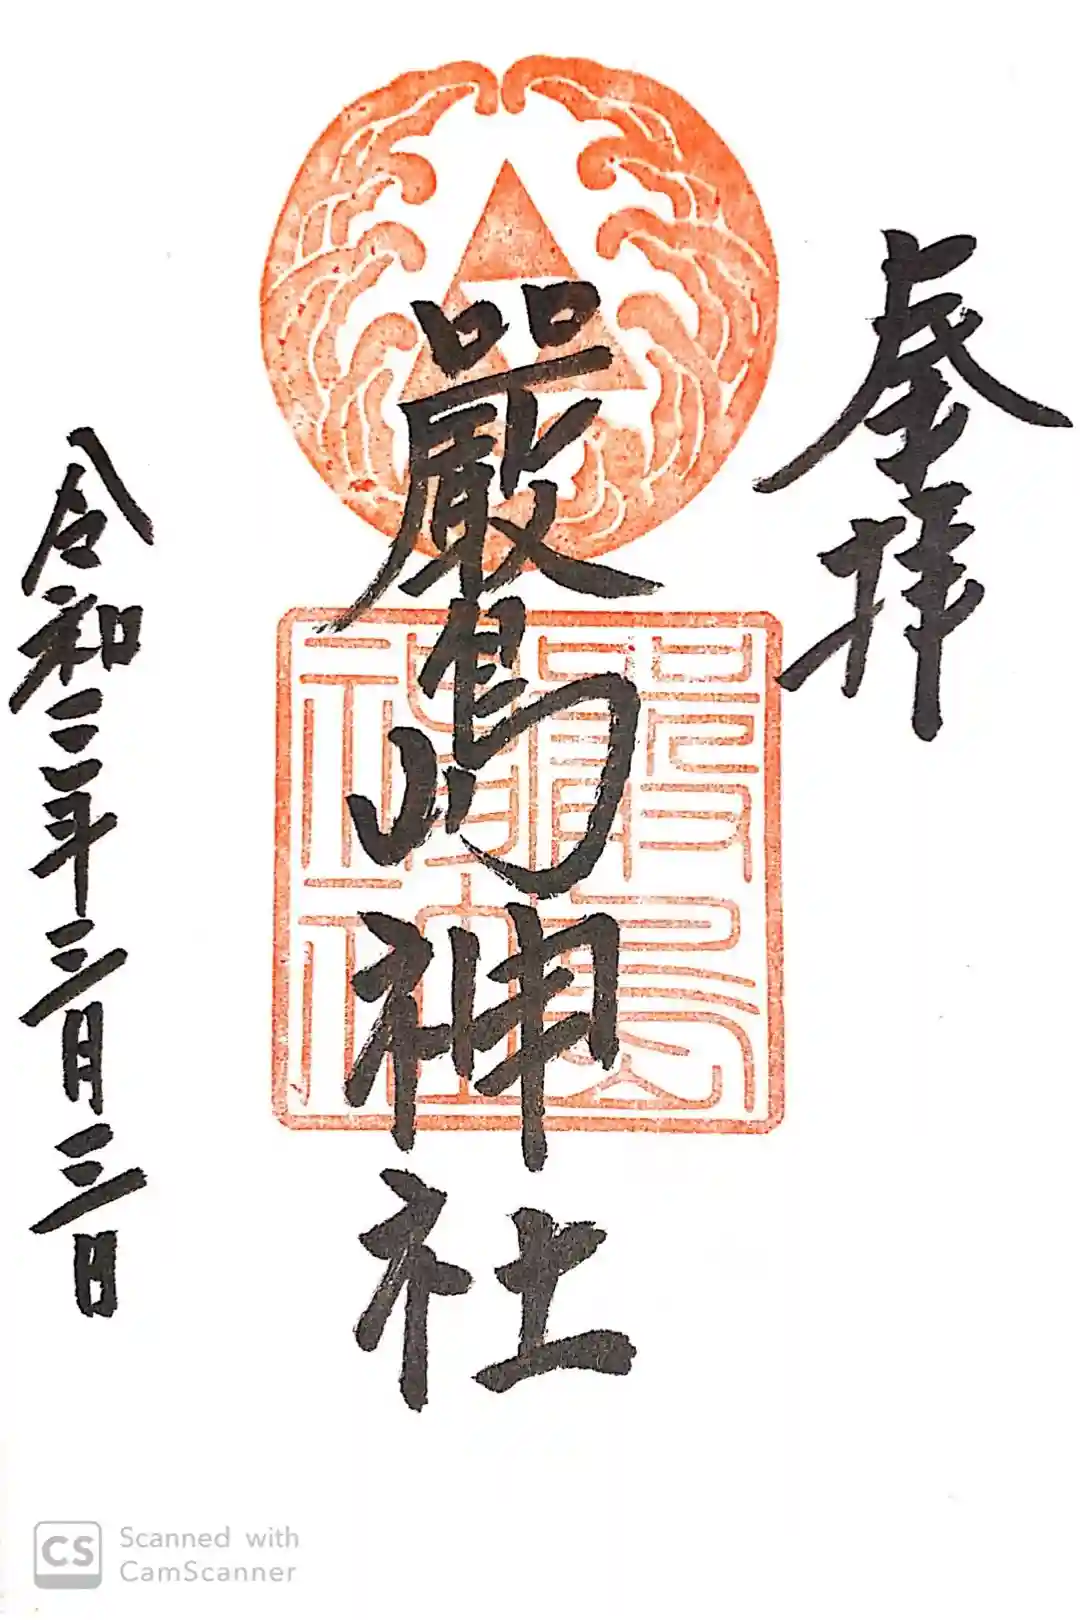 参拝
嚴島神社
令和二年三月三日
嚴島
神社
CS Scanned with
CamScanner